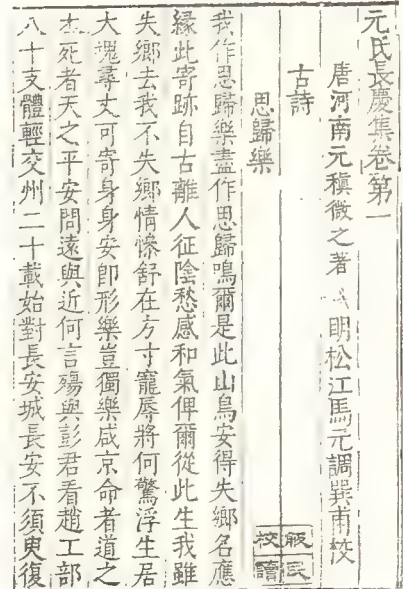 元氏長慶集卷第一
唐河南元稹微之著 明松江馬元調巽甫校
古詩
思歸樂
我作思歸樂盡作思歸鳴爾是此山鳥安得失鄉名應
緣此寄跡自古離人征陰愁感和氣俾爾從此生我雖
失鄉去我不失鄉情慘舒在方寸寵辱將何驚浮生居
大塊尋丈可寄身身安即形樂豈獨樂咸京命者道之
本死者天之平安問遠與近何言殤與彭君看趙工部
八十支體輕交州二十載始對長安城長安不須臾復